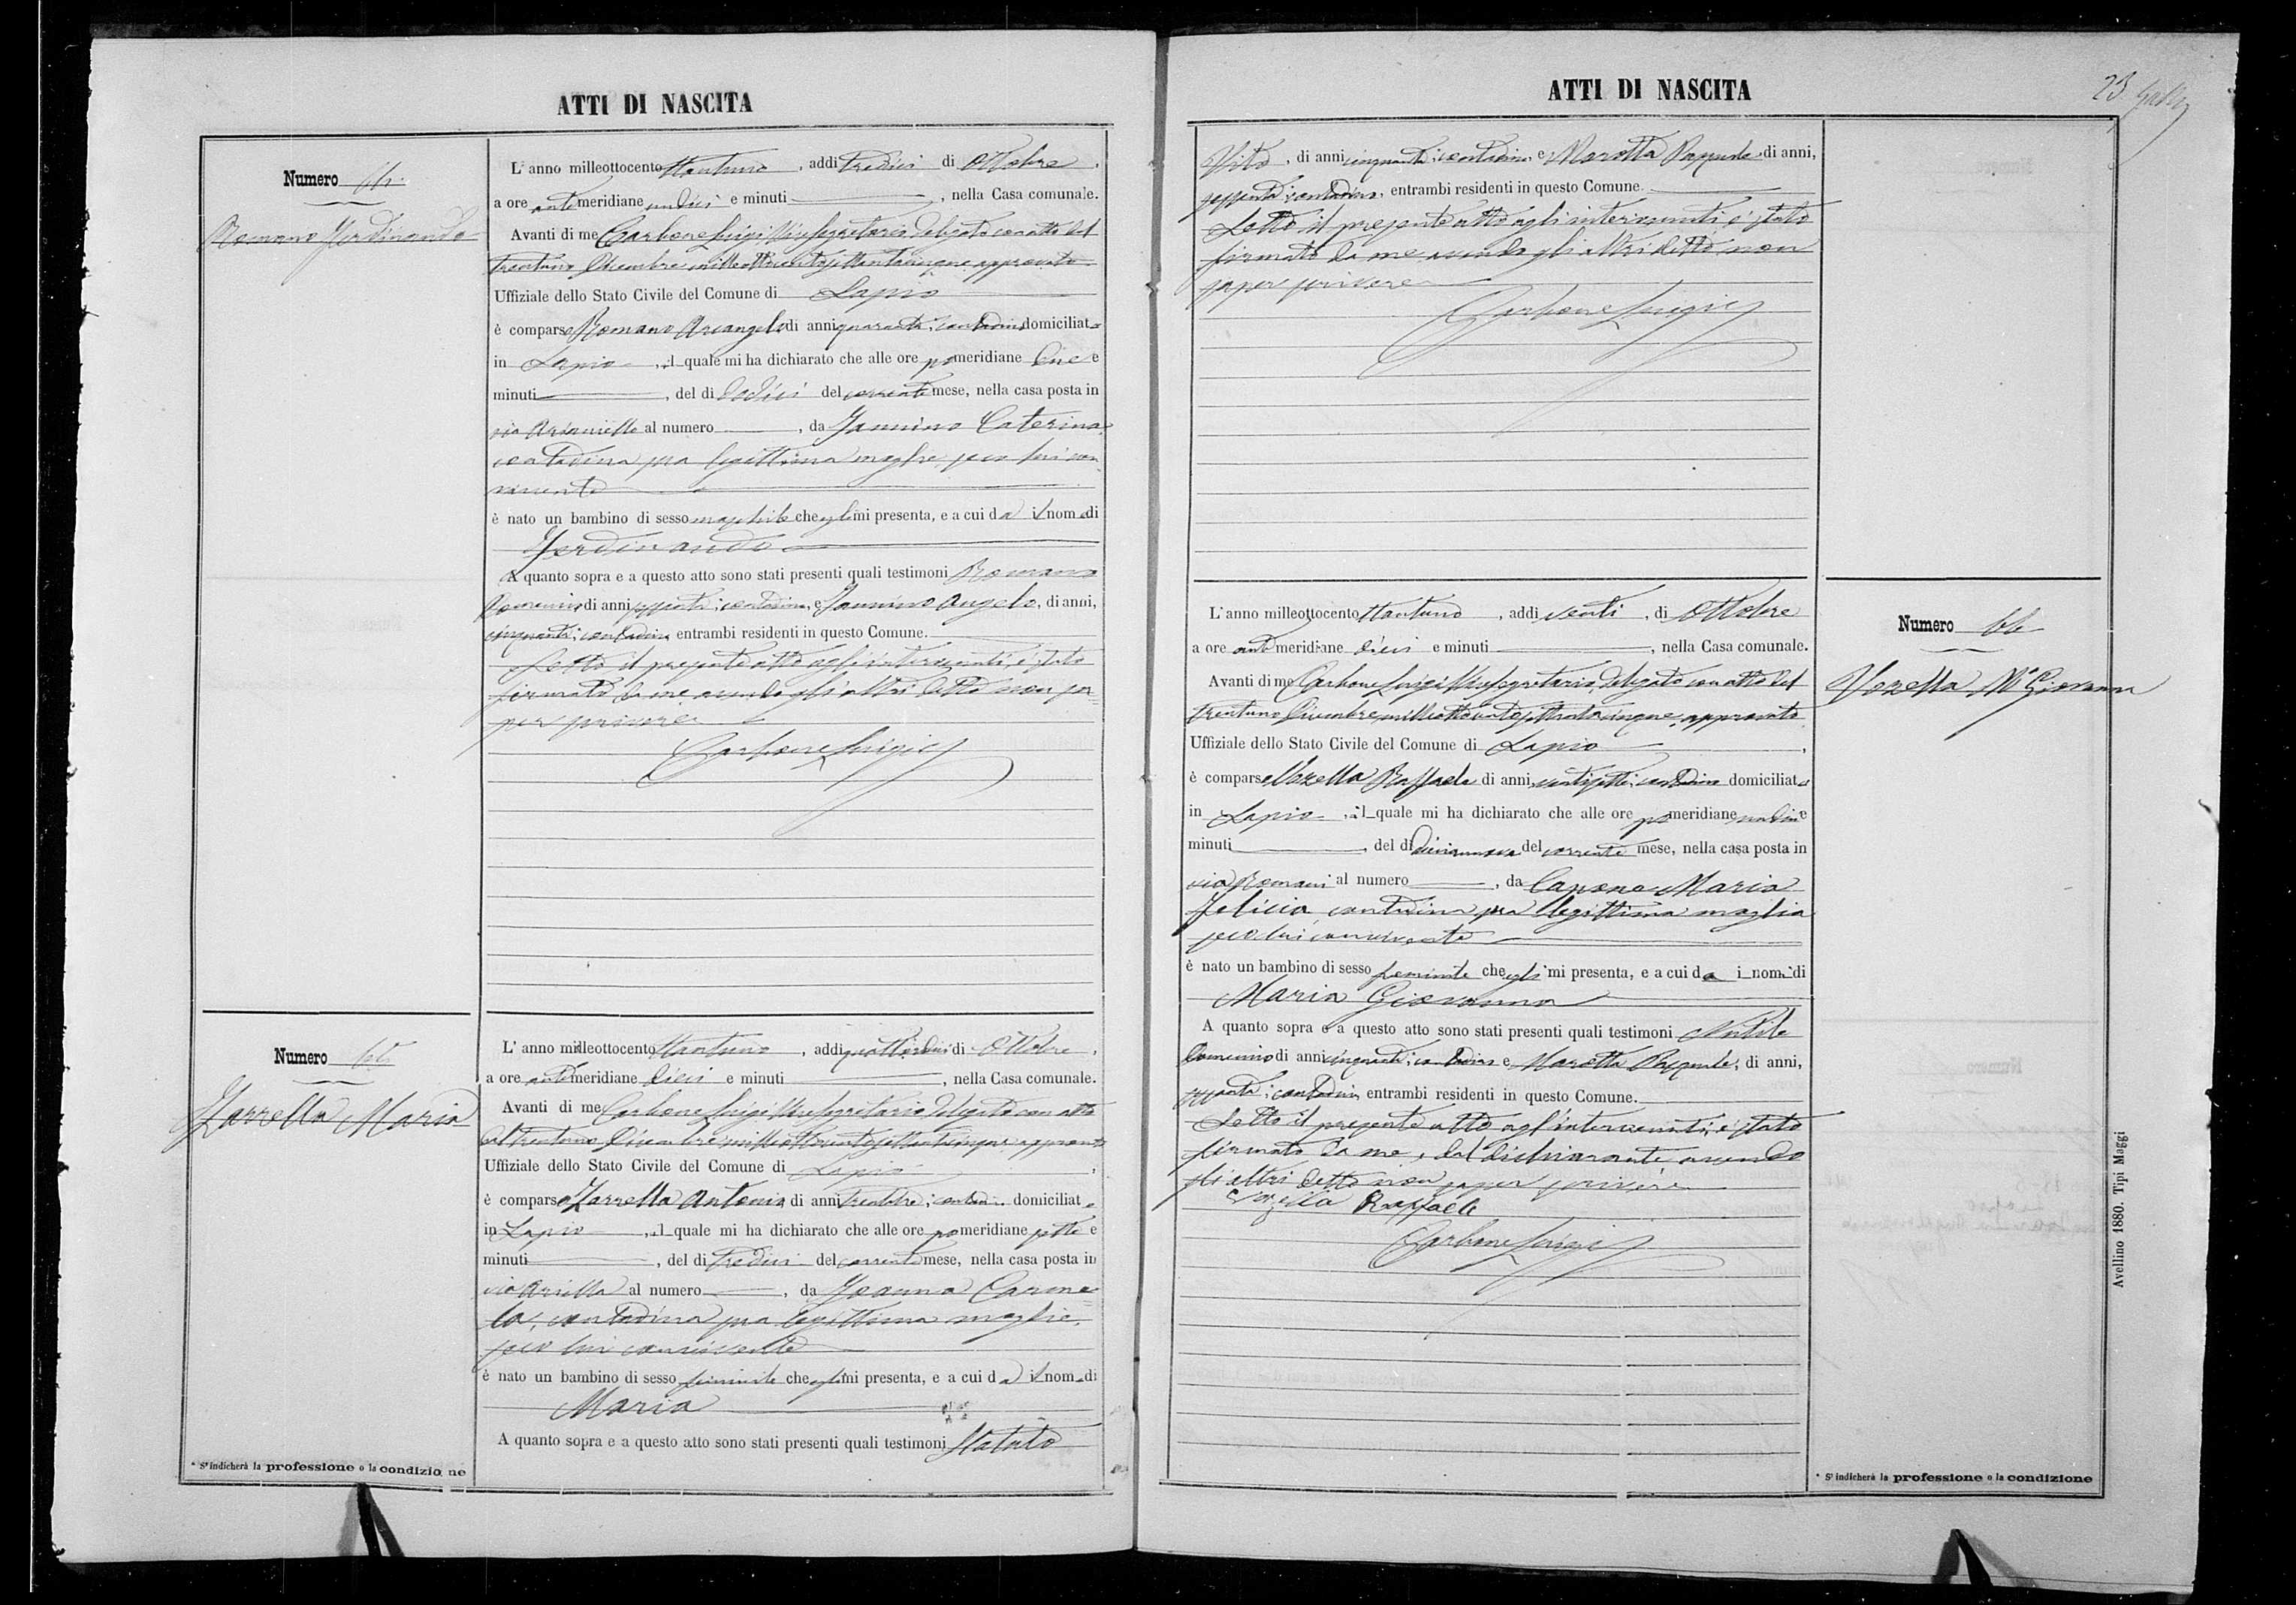 ATTI DI NASCITA
Numero 64
Romano Ferdinando
L'anno milleottocento ottantuno, addi tredici di Ottobre,
a ore antimeridiane undici e minuti, nella Casa comunale.
Avanti di me Carbone Luigi Vice Segretario, delegato con atto del
trentuno Dicembre milleottocentosettantacinque approvato
Uffiziale dello Stato Civile del Comune di Lapio
è comparso Romano Arcangelo di anni quaranta, contadino domiciliato
in Lapio, il quale mi ha dichiarato che alle ore pomeridiane due e
minuti, del di dodici del corrente mese, nella casa posta in
via Arianiello al numero, da Jannino Caterina
contadina sua legittima moglie, seco lui con
vivente
è nato un bambino di sesso maschile che egli mi presenta, e a cui da il nome di
Ferdinando
A quanto sopra e a questo atto sono stati presenti quali testimoni Romano
Domenico di anni sessanta, contadino, e Jannino Angelo, di anni,
cinquanta, contadino entrambi residenti in questo Comune.
Letto il presente atto agli intervenuti, è stato
firmato da me avendo gli altri detto non sa=
per scrivere
Carbone Luigi
Numero 65
Zarrella Maria
L'anno milleottocento ottantuno, addi quattordici di Ottobre,
a ore antimeridiane dieci e minuti, nella Casa comunale.
Avanti di me Carbone Luigi Vice Segretario delegato con atto
del trentuno Dicembre milleottocentosettantacinque approvato
Uffiziale dello Stato Civile del Comune di Lapio,
è comparso Zarrella Antonio di anni trentatre, contadino domiciliato
in Lapio, il quale mi ha dichiarato che alle ore pomeridiane sette e
minuti, del di tredici del corrente mese, nella casa posta in
via Ariella al numero, da Joanna Carme=
la, contadina sua legittima moglie,
seco lui convivente
è nato un bambino di sesso feminile che egli mi presenta, e a cui da il nome di
Maria
A quanto sopra e a questo atto sono stati presenti quali testimoni Statuto
* S'indicherà la professione o la condizione
ATTI DI NASCITA
23
Vito, di anni cinquanta, contadino e Marotta Pasquale di anni,
sessanta, contadino, entrambi residenti in questo Comune.
Letto il presente atto agli intervenuti, è stato
firmato da me avendo gli altri detto non
saper scrivere
Carbone Luigi
L'anno milleottocento ottantuno, addi venti, di Ottobre
a ore antimeridiane dieci e minuti, nella Casa comunale.
Avanti di me Carbone Luigi Vice Segretario, delegato con atto del
trentuno Dicembre milleottocentosettantacinque, approvato
Uffiziale dello Stato Civile del Comune di Lapio,
è comparso Vozella Raffaele di anni, ventisette, contadino domiciliato
in Lapio, il quale mi ha dichiarato che alle ore pomeridiane undici e
minuti, del di diciannove del corrente mese, nella casa posta in
via Romani al numero, da Capone Maria
Felicia contadina sua legittima moglia
seco lui convivente
è nato un bambino di sesso feminile che egli mi presenta, e a cui da i nomi di
Maria Giovanna
A quanto sopra e a questo atto sono stati presenti quali testimoni
Domenico di anni cinquanta, contadino e Marotta Pasquale, di anni,
sessanta, contadino, entrambi residenti in questo Comune.
Letto il presente atto agl'intervenuti, è stato
firmato da me, e dal dichiarante, avendo
gli altri detto non saper scrivere
Vozella Raffaele
Carbone Luigi
Numero 66
Vozella Mª Giovanna
* S'indicherà la professione o la condizione
Avellino 1880. Tipi Maggi